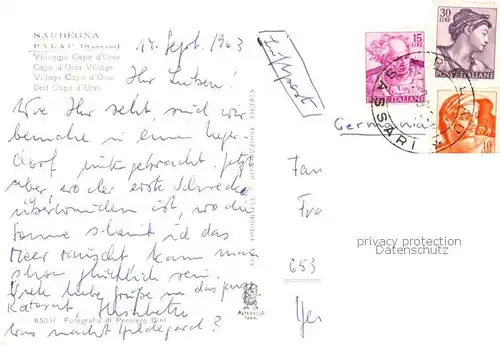 SARDEGNA
PALAU (Sassari)
Villaggio Capo d'Orso
Capo d'Orso Village
Village Capo d'Orso
Dorf Capo d'Orso
14. Sept. 1963
Luftpost
Ihr Lieben!
Wie Ihr seht, sind wir
beinahe in einem Neger-
dorf untergebracht. Jetzt
aber, wo der erste Schreck
überwunden ist, wo die
Sonne scheint und das
Meer rauscht kann man
schon glücklich sein.
Viele liebe Grüße an das ganze
was macht Hildegard?
65091 Fotografia di Pensiero Bini
ALTEROCCA
TERNI
15
LIRE
POSTE ITALIANE
30
LIRE
POSTE ITALIANE
10
PALAU
SASSARI
Germania
Fam
Fra
653
privacy protection
Datenschutz